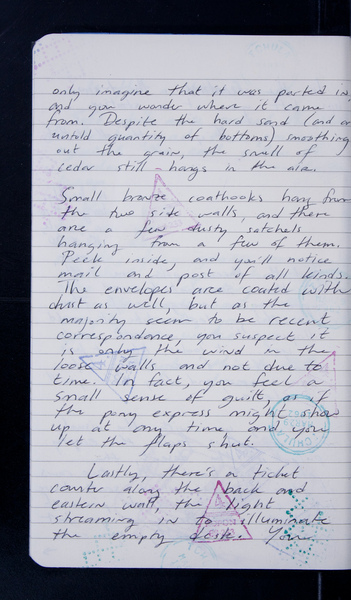 only imagine that it was parted in,
and you wonder where it came
from. Despite the hard sand (and an
untold quantity of bottoms) smoothing
out the grain, the smell of
cedar still hangs in the air.
Small bronze coathooks hang from
the two side walls, and there
are a few dusty satchels
hanging from a few of them.
Peek inside, and you'll notice
mail and post of all kinds.
The envelopes are coated with
dust as well, but as the
majority seem to be recent
correspondence, you suspect it
is only the wind in the
loose walls and not due to
time. In fact, you feel a
small sense of guilt, as if
the pony express might show
up at any time and you
let the flaps shut.
Lastly, there's a ticket
counter along the back and
eastern wall, the light
streaming in to illuminate
the empty desk. You